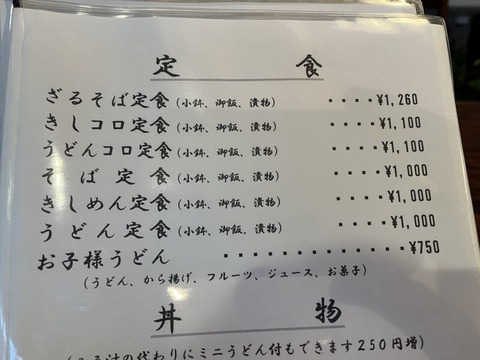 定食
ざるそば定食(小鉢、御飯、漬物) ････¥1,260
きしコロ定食(小鉢、御飯、漬物) ････¥1,100
うどんコロ定食(小鉢、御飯、漬物) ････¥1,100
そば定食(小鉢、御飯、漬物) ････¥1,000
きしめん定食(小鉢、御飯、漬物) ････¥1,000
うどん定食(小鉢、御飯、漬物) ････¥1,000
お子様うどん ･････････････¥750
(うどん、から揚げ、フルーツ、ジュース、お菓子)
丼物
汁の代わりにミニうどん付もできます250円増)